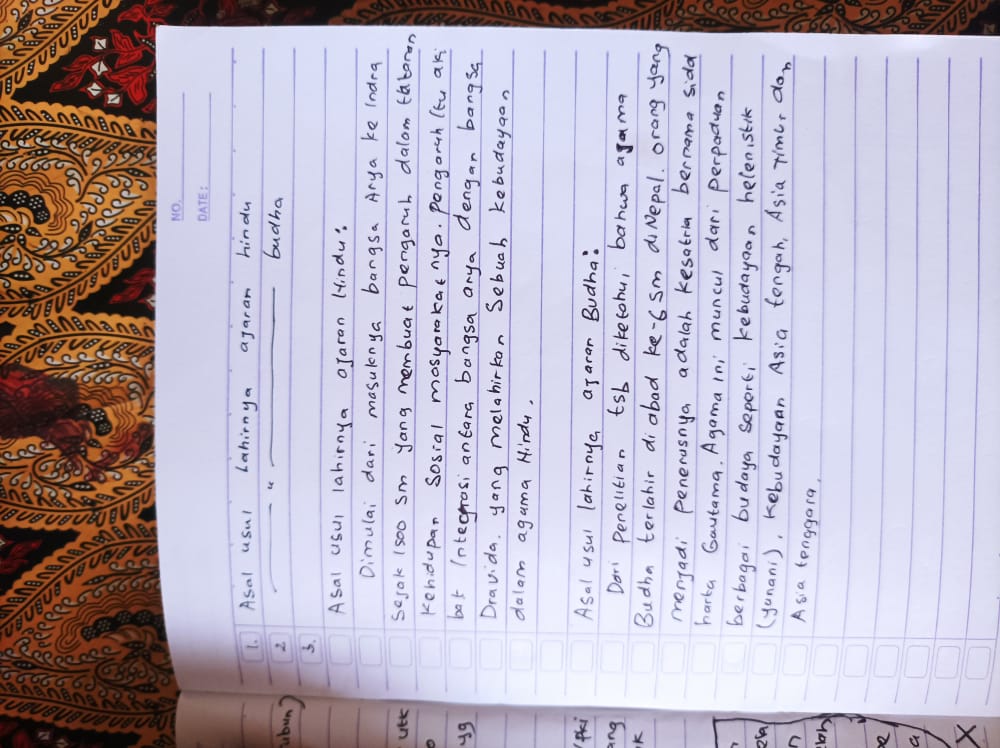 NO.
DATE:
1. Asal usul lahirnya ajaran hindu
2 ——— " ——— budha
3.
Asal usul lahirnya ajaran Hindu:
Dimulai dari masuknya bangsa Arya ke Indra
Sejak 1500 sm yang membuat pengaruh dalam tatanan
Kehidupan Sosial masyarakatnya. Pengaruh itu aki
bat Integrasi antara bangsa arya dengan bangsa
Dravida. yang melahirkan Sebuah kebudayaan
dalam agama Hindu.
Asal usul lahirnya ajaran Budha:
Dari Penelitian tsb diketahui bahwa agama
Budha terlahir di abad ke-6 sm di Nepal. orang yang
menjadi penerusnya adalah kesatria bernama sida
harta Gautama. Agama ini muncul dari perpaduan
berbagai budaya seperti kebudayaan helenistik
(yunani), kebudayaan Asia tengah, Asia Timur dan
Asia tenggara.
ubun)
utk
yg
ang
k
X